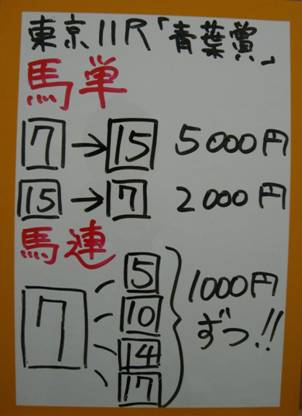 東京11R「青葉賞」
馬単
7→15 5000円
15→7 2000円
馬連
7
5
10
14
17
1000円
ずつ!!